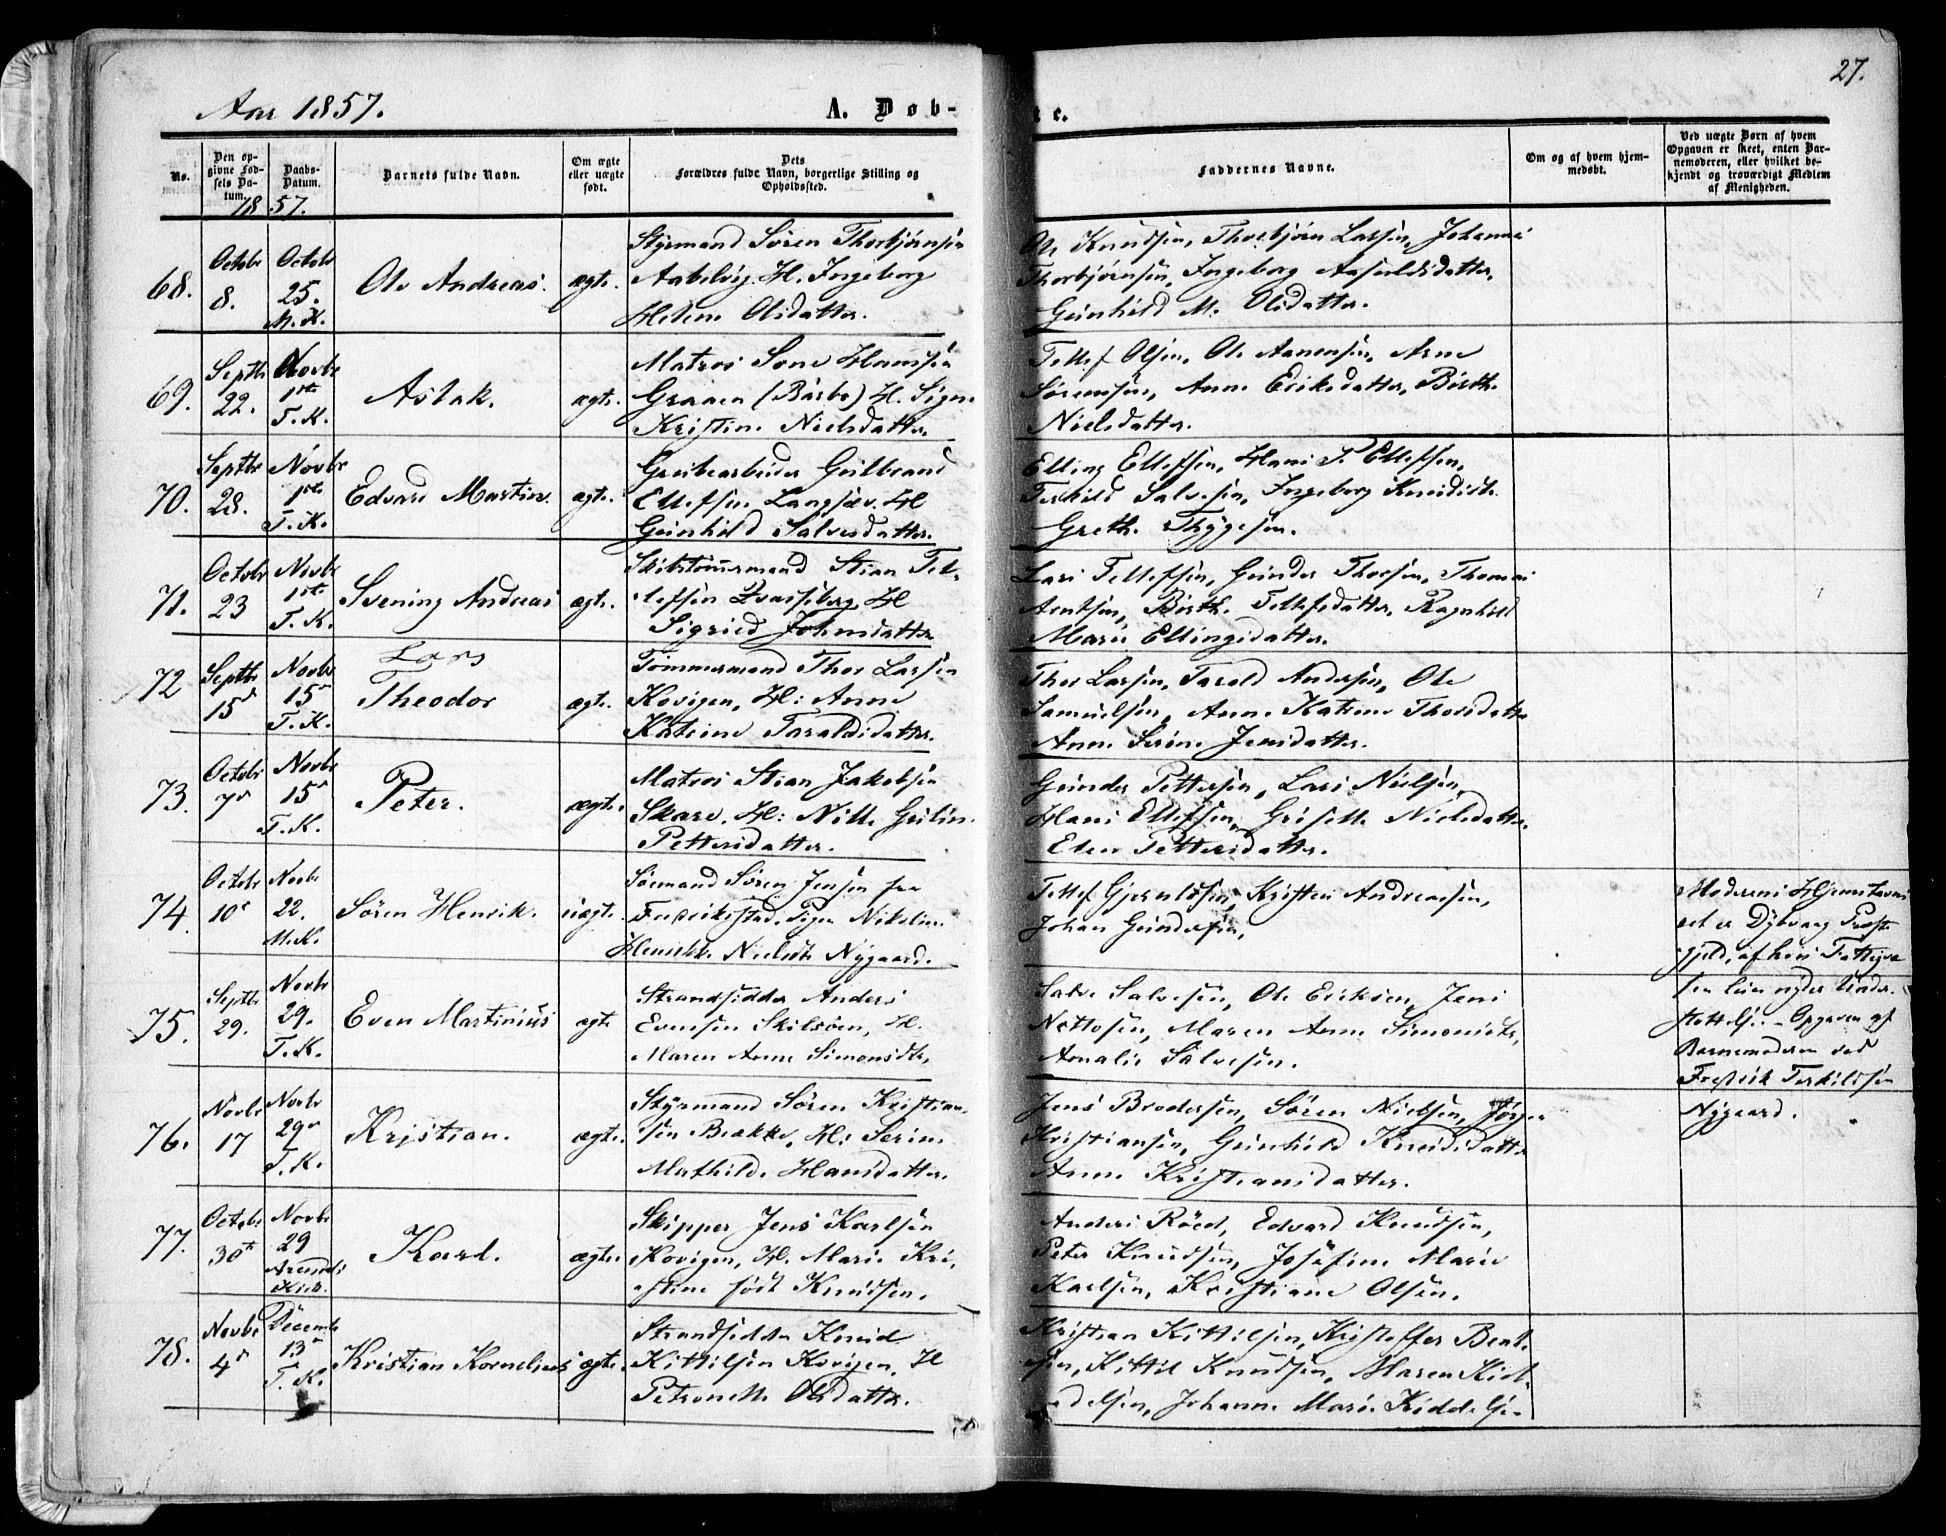 27.
Aar 1857.
A. Døb-
te.
No.
Den opgivne Fødsels Datum.
Daabs-Datum.
Barnets fulde Navn.
Om ægte eller uægte født.
Dets Forældres fulde Navn, borgerlige Stilling og Opholdssted.
Faddernes Navne.
Om og af hvem hjemmedøbt.
Ved uægte Børn af hvem Opgaven er skeet, enten Barnemoderen, eller hvilket bekjendt og troværdigt Medlem af Menigheden.
1857.
68.
Octobr 8.
Octobr 25. M.K.
Ole Andreas.
ægte.
Styrmand Søren Thorbjørnsen
H. Ingeborg
Helene Olsdatter.
Ole Knudsen, Thorbjørn Larsen, Johannes
Thorbjørnsen, Ingeborg Aasuldsdatter,
Gunhild M. Olsdatter.
69.
Septbr 22.
Novbr 1ste T.K.
Aslak.
ægte.
Matros Hansen
(Barbo) H. Signe
Kristine Nielsdatter.
Tellef Olsen, Ole Aanensen, Arne
Sørensen, Anne Eriksdatter, Birthe
Nielsdatter.
70.
Septbr 28.
Novbr 1ste T.K.
Edvard Martin.
ægte.
Grubearbeider Gulbrand
Ellefsen Langsæv. H
Gunhild Salvesdatter.
Elling Ellefsen, Hans P. Ellefsen,
Terkild Salvesen, Ingeborg Knudsdtr.
Grethe Thygesen.
71.
Octobr 23
Novbr 1ste T.K.
Svening Andreas
ægte.
Skibstømmermand Stian Tel-
lefsen H
Sigried Johnsdatter
Lars Tellefsen, Gunder Thorsen, Thomas
Arntsen, Birthe Tellefsdatter, Ragnhild
Marie Ellingsdatter.
72
Septbr 15de
Novbr 15de T.K.
Lars
Theodor
ægte.
Tømmermand Thor Larsen
Kovigen, H: Anne
Katrine Taraldsdatter.
Thor Larsen, Tarald Andersen, Ole
Samuelsen, Anne Katrine Thorsdatter
Anne Serine Jensdatter.
73.
Octobr 7de
Novbr 15de T.K.
Peter.
ægte.
Matros Stian Jakobsen
Skare. H: Gulin.
Pettersdatter.
Gunder Pettersen, Lars Nielsen,
Hans Ellefsen, Griselle Nielsdatter,
Elen Pettersdatter.
74.
Octobr 10de
Novbr 22. M.K.
Søren Henrik.
uægte.
Sømand Søren Jensen fra
Fredrikstad. Pigen Nikoline
Henrikke Nielsdtr Nygaard.
Tellef Gjeruldsen, Kristen Andreassen,
Johan Gundersen,
Moderens Hjemstavns
ret er Dybvaag Præste
gjeld, af hvis Fattigva
sen hun nyder Under-
støttelse. – Opgaven af
Barnemoderen ved
Fredrik Terkildsen
Nygaard.
75.
Septbr 29.
Novbr 29. T.K.
Even Martinius
ægte
Strandsidder Anders
Evensen Skilsøen, H.
Maren Anne Simonsdtr,
Salve Salvesen, Ole Eriksen, Jens
Nottosen, Maren Anne Simonsdtr,
Amalie Salvesen.
76.
Novbr 17
Novbr 29de T.K.
Kristian.
ægte.
Styrmand Søren Kristian-
sen Brække, H: Serine
Mathilde Hansdatter.
Jens Brodersen, Søren Nielsen, Jørgen
Kristiansen, Gunhild Knudsdatter
Anne Kristiansdatter.
77.
Octobr 30te
Novbr 29 Arendals Kirke.
Karl.
ægte.
Skipper Jens Karlsen
Kovigen, H. Marie Kri-
stine født Knudsen.
Anders Röed, Edvard Knudsen,
Peter Knudsen, Josefine Marie
Karlsen, Kristiane Olsen.
78.
Novbr 4de
Decembr 13de T.K.
Kristian Kornelius
ægte.
Strandsidder Knud
Kittilsen Kovigen, H
Petronelle Olsdatter.
Kristian Kittilsen, Kristoffer Bent-
sen, Kittil Knudsen, Maren Kid-
delsen, Johanne Marie Kiddelse-